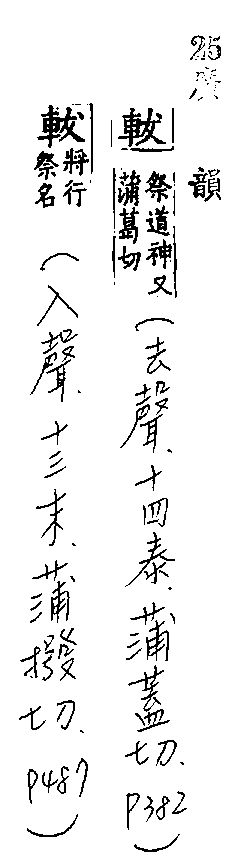 25廣韻
軷祭道神又蒲葛切(去聲、十四泰、蒲蓋切、P382)
軷將行祭名(入聲、十三末、蒲撥切、P487)